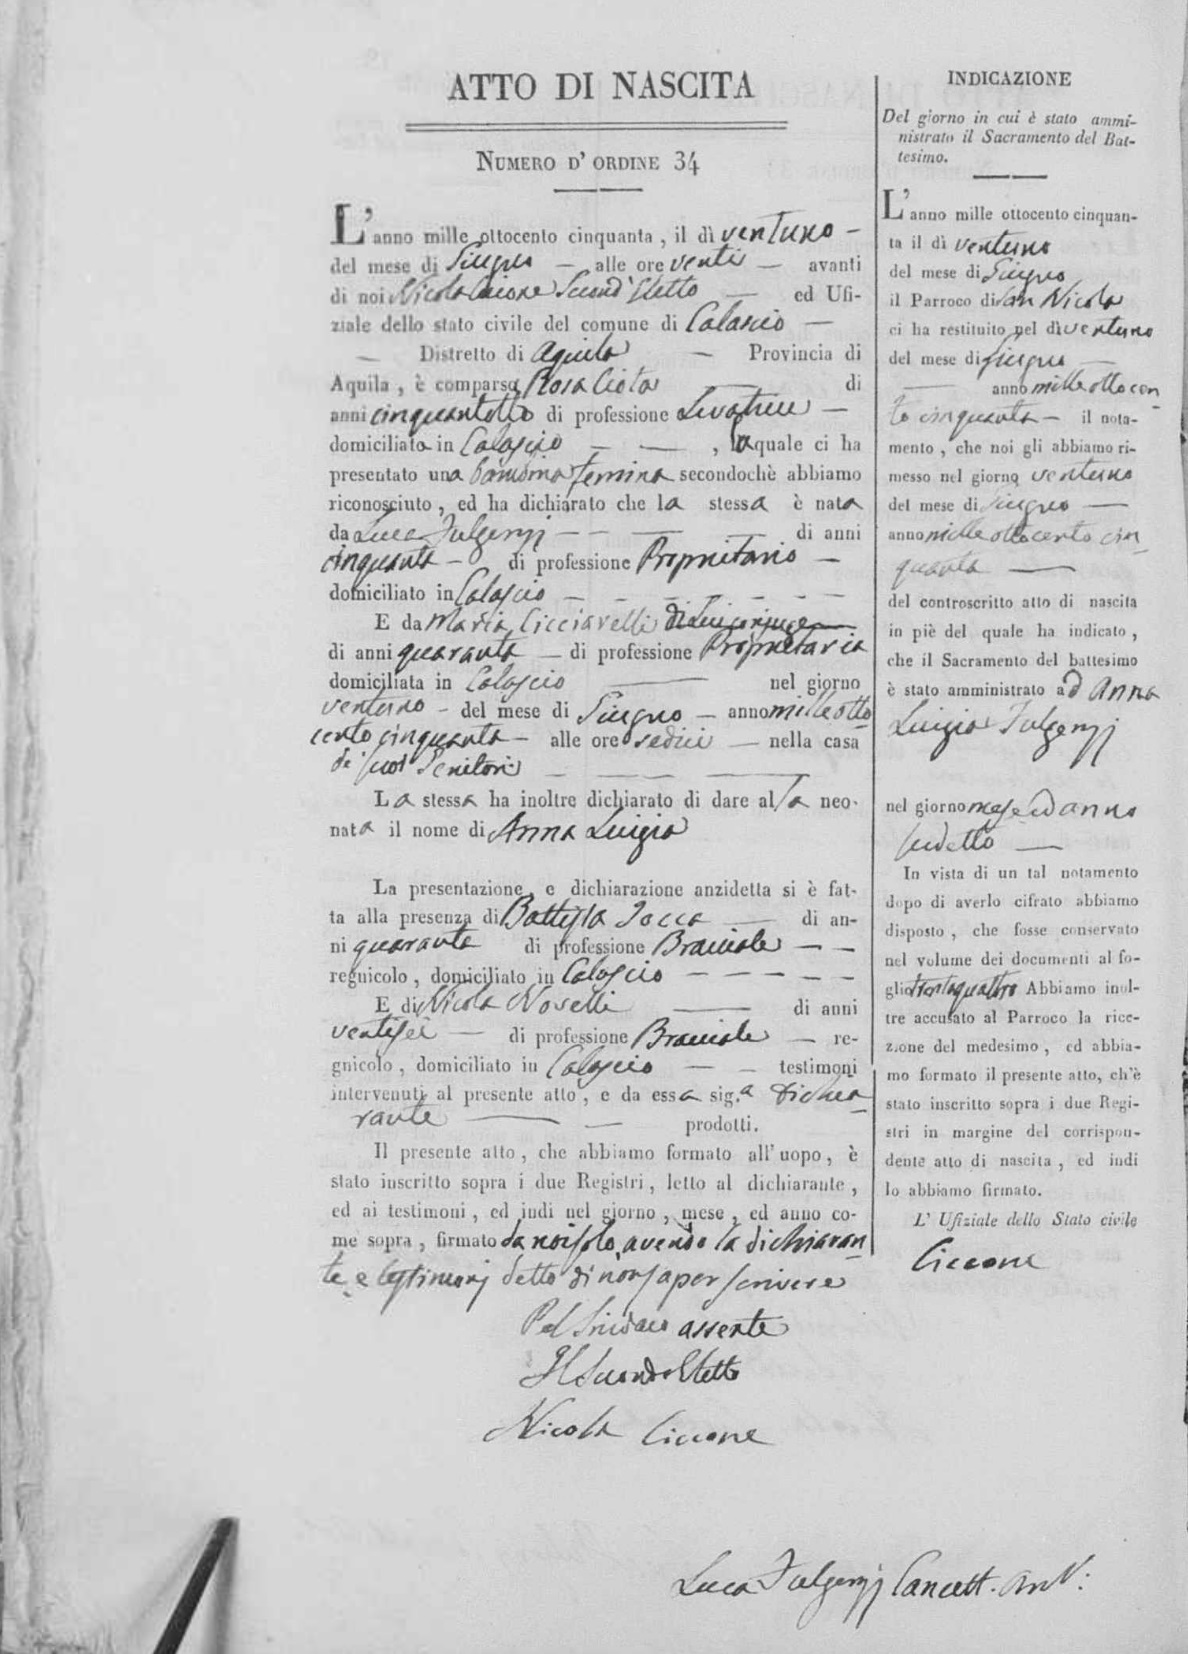 ATTO DI NASCITA
NUMERO D' ORDINE 34
L'anno mille ottocento cinquanta, il dì ventuno –
del mese di Giugno — alle ore venti — avanti
di noi Nicola Ciccone Second'Eletto — ed Ufi-
ziale dello stato civile del comune di Calascio —
— Distretto di Aquila — Provincia di
Aquila, è comparsa Rosa Ciota — di
anni cinquantotto di professione Levatrice —
domiciliata in Calascio — — , la quale ci ha
presentato una bambina femina secondochè abbiamo
riconosciuto, ed ha dichiarato che la stessa è nata
da Luca Fulgenzj — — — di anni
cinquanta — di professione Proprietario —
domiciliato in Calascio — — — — — —
E da Maria Cicciarelli di Lui conjuge
di anni quaranta — di professione Proprietaria
domiciliata in Calascio — nel giorno
ventuno – del mese di Giugno — anno mille otto
cento cinquanta — alle ore sedici — nella casa
di suoi Genitori — — —
La stessa ha inoltre dichiarato di dare alla neo-
nata il nome di Anna Luigia
La presentazione, e dichiarazione anzidetta si è fat-
ta alla presenza di Battista Jocca — di an-
ni quaranta di professione Bracciale — —
regnicolo, domiciliato in Calascio — — — — —
E di Nicola Novelli — di anni
ventisei — di professione Bracciale — re-
gnicolo, domiciliato in Calascio — — testimoni
intervenuti al presente atto, e da essa sig.a Dichia-
rante — — prodotti.
Il presente atto, che abbiamo formato all'uopo, è
stato inscritto sopra i due Registri, letto al dichiarante,
ed ai testimoni, ed indi nel giorno, mese, ed anno co-
me sopra, firmato da noi solo, avendo la dichiaran-
te, e testimonj detto di non saper scrivere
Pel Sindaco assente
Il Secondo Eletto
Nicola Ciccone
INDICAZIONE
Del giorno in cui è stato ammi-
nistrato il Sacramento del Bat-
tesimo.
L'anno mille ottocento cinquan-
ta il dì ventuno
del mese di Giugno
il Parroco di San Nicola
ci ha restituito nel dì ventuno
del mese di Giugno —
— anno mille otto cen-
to cinquanta — il nota-
mento, che noi gli abbiamo ri-
messo nel giorno ventuno
del mese di Giugno —
anno mille ottocento cin-
quanta —
del controscritto atto di nascita
in piè del quale ha indicato,
che il Sacramento del battesimo
è stato amministrato ad Anna
Luigia Fulgenzj
nel giorno mese ed anno
sudetto —
In vista di un tal notamento
dopo di averlo cifrato abbiamo
disposto, che fosse conservato
nel volume dei documenti al fo-
glio trentaquattro Abbiamo inol-
tre accusato al Parroco la rice-
zione del medesimo, ed abbia-
mo formato il presente atto, ch'è
stato inscritto sopra i due Regi-
stri in margine del corrispon-
dente atto di nascita, ed indi
lo abbiamo firmato.
L' Ufiziale dello Stato civile
Ciccone
Luca Fulgenzj Cancell.